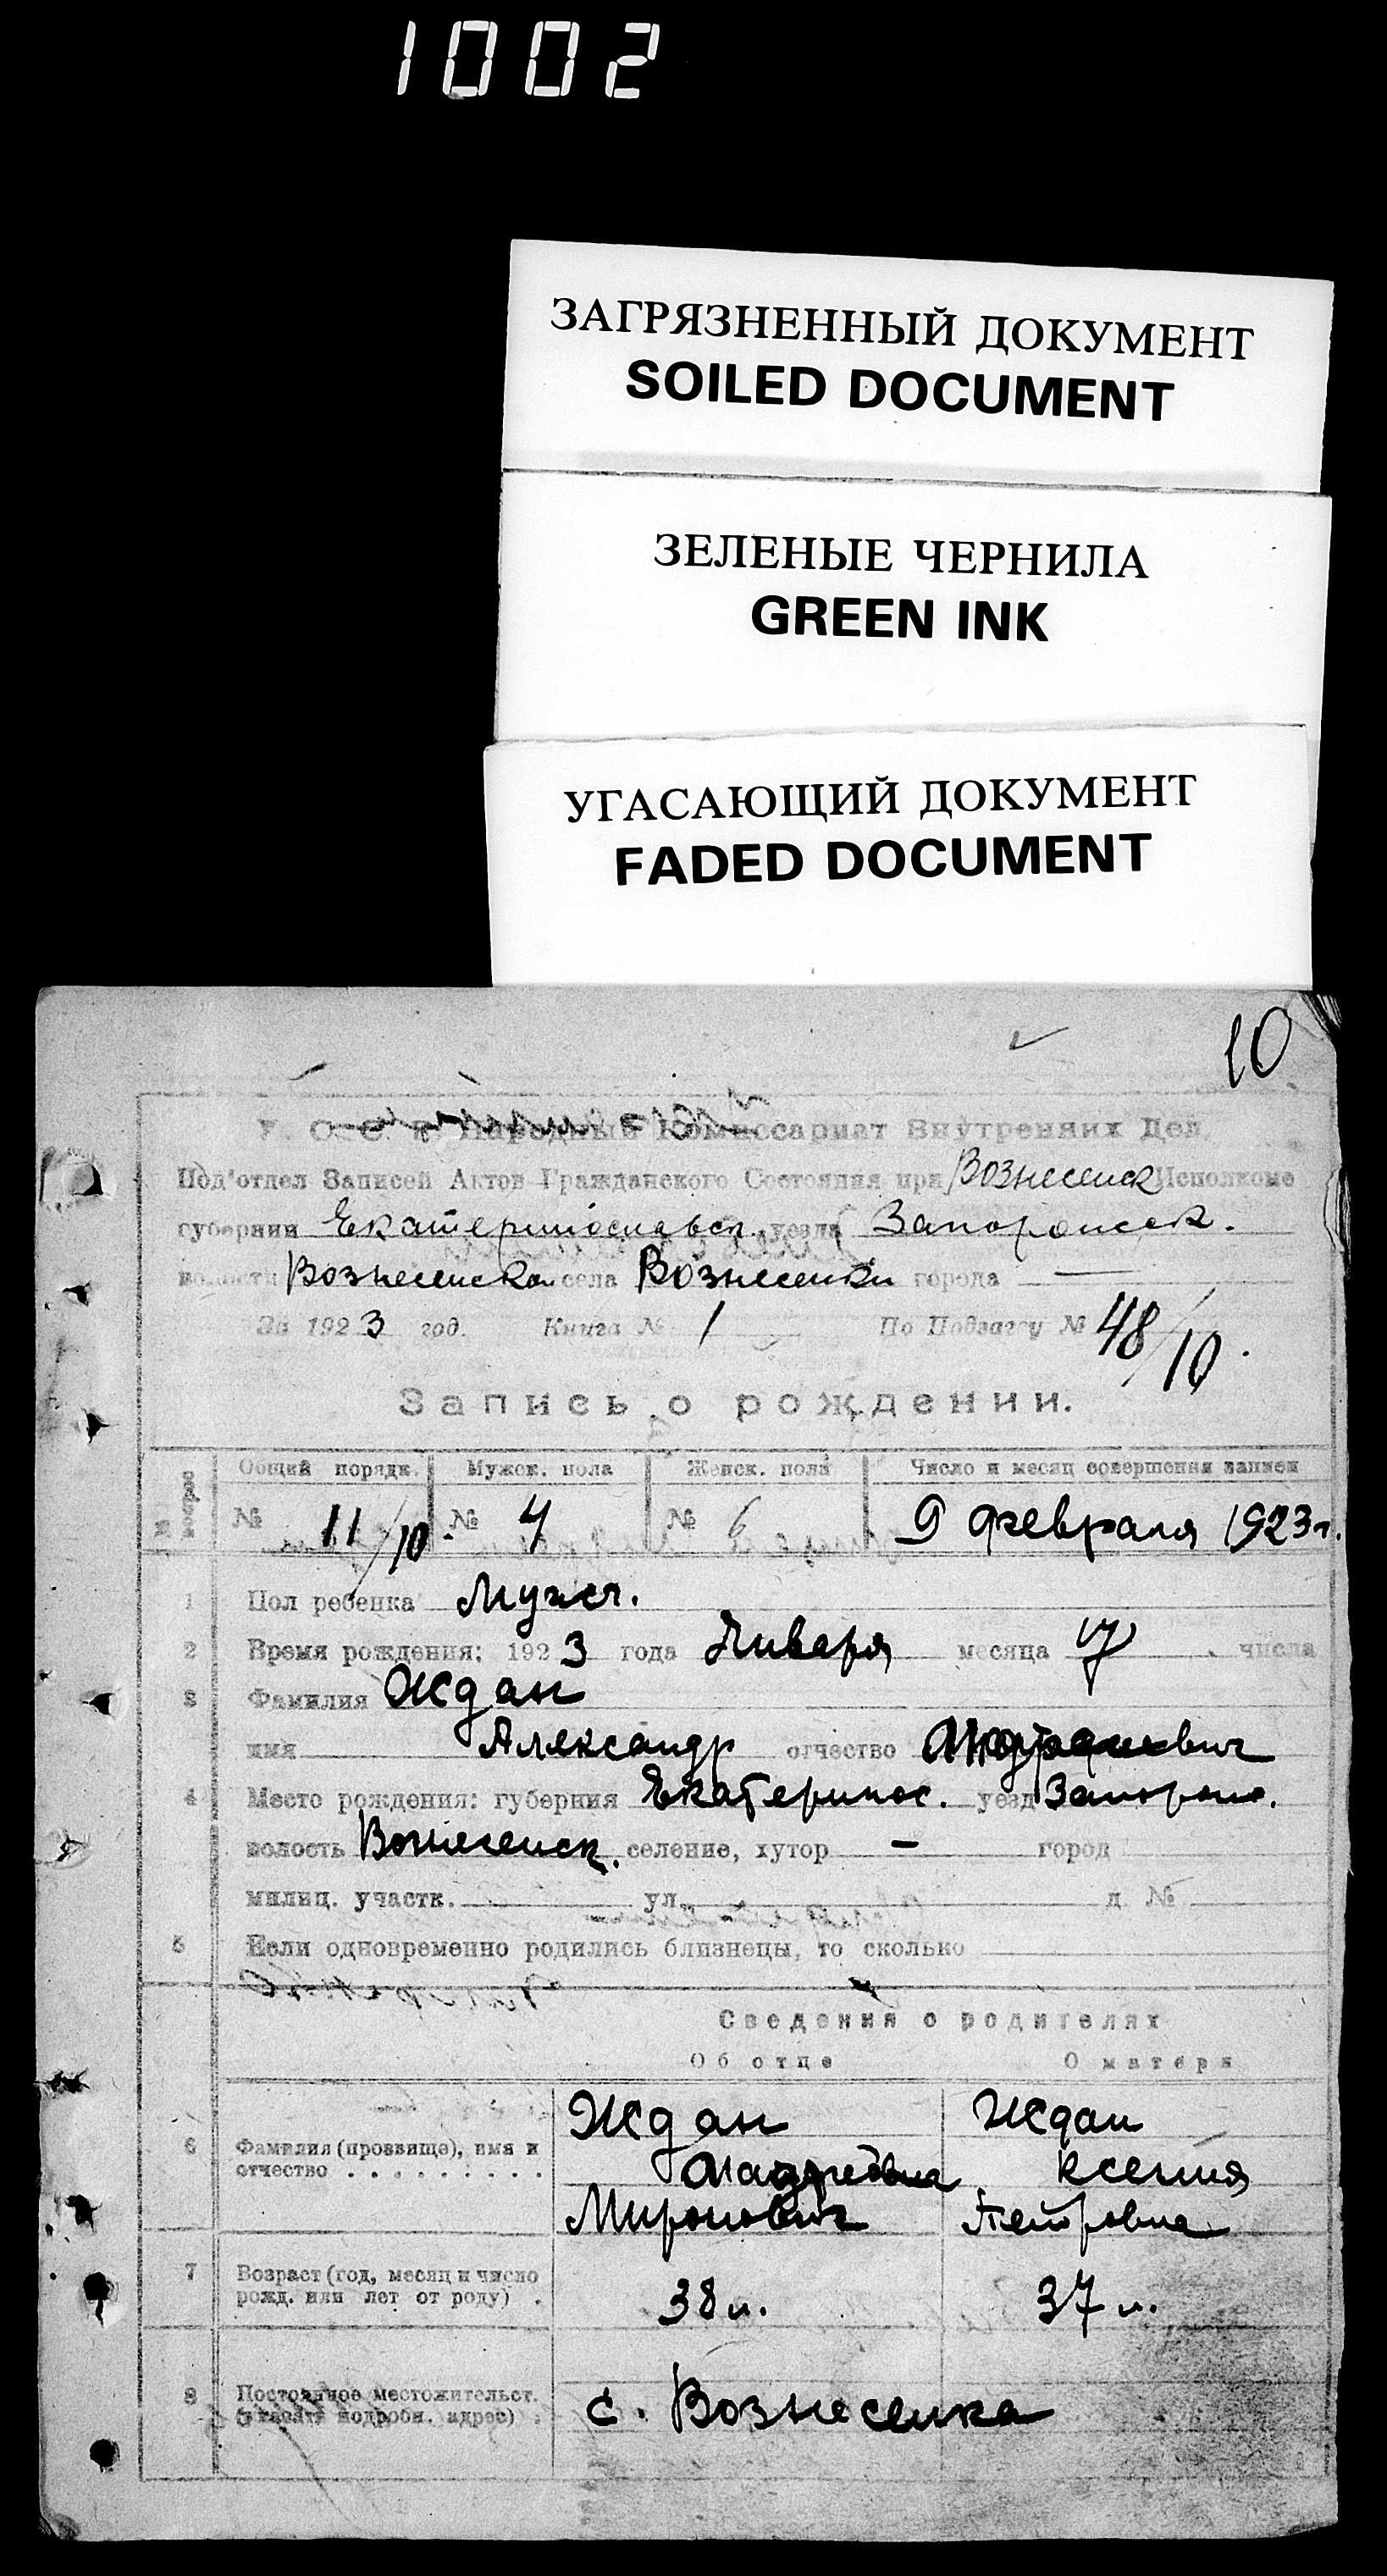 1002
ЗАГРЯЗНЕННЫЙ ДОКУМЕНТ
SOILED DOCUMENT
ЗЕЛЕНЫЕ ЧЕРНИЛА
GREEN INK
УГАСАЮЩИЙ ДОКУМЕНТ
FADED DOCUMENT
10
У. С. С. Р. Народный Комиссариат Внутренних Дел
Под'отдел Записей Актов Гражданского Состояния при Вознесенск Исполкоме
губернии Екатеринославск. уезда Запорожск.
волости Вознесенской села Вознесенки города —
За 1923 год. Книга № 1 По Подзагсу № 48/10.
Запись о рождении.
Общий порядк. Мужск. пола Женск. пола Число и месяц совершения записи
№ 11/10. № 4 № 6 9 февраля 1923 г.
1 Пол ребенка Мужск.
2 Время рождения: 1923 года Января месяца 17 числа
3 Фамилия Ждан
имя Александр отчество
4 Место рождения: губерния Екатеринос. уезд Запорож.
волость Вознесенск. селение, хутор — город
милиц. участк. ул. д. №
5 Если одновременно родились близнецы, то сколько
Сведения о родителях
Об отце О матери
6 Фамилия (прозвище), имя и отчество Ждан Миронович Ждан Ксения Петровна
7 Возраст (год, месяц и число рожд. или лет от роду) 38 л. 37 л.
8 Постоянное местожительст. (указать подробн. адрес) с. Вознесенка